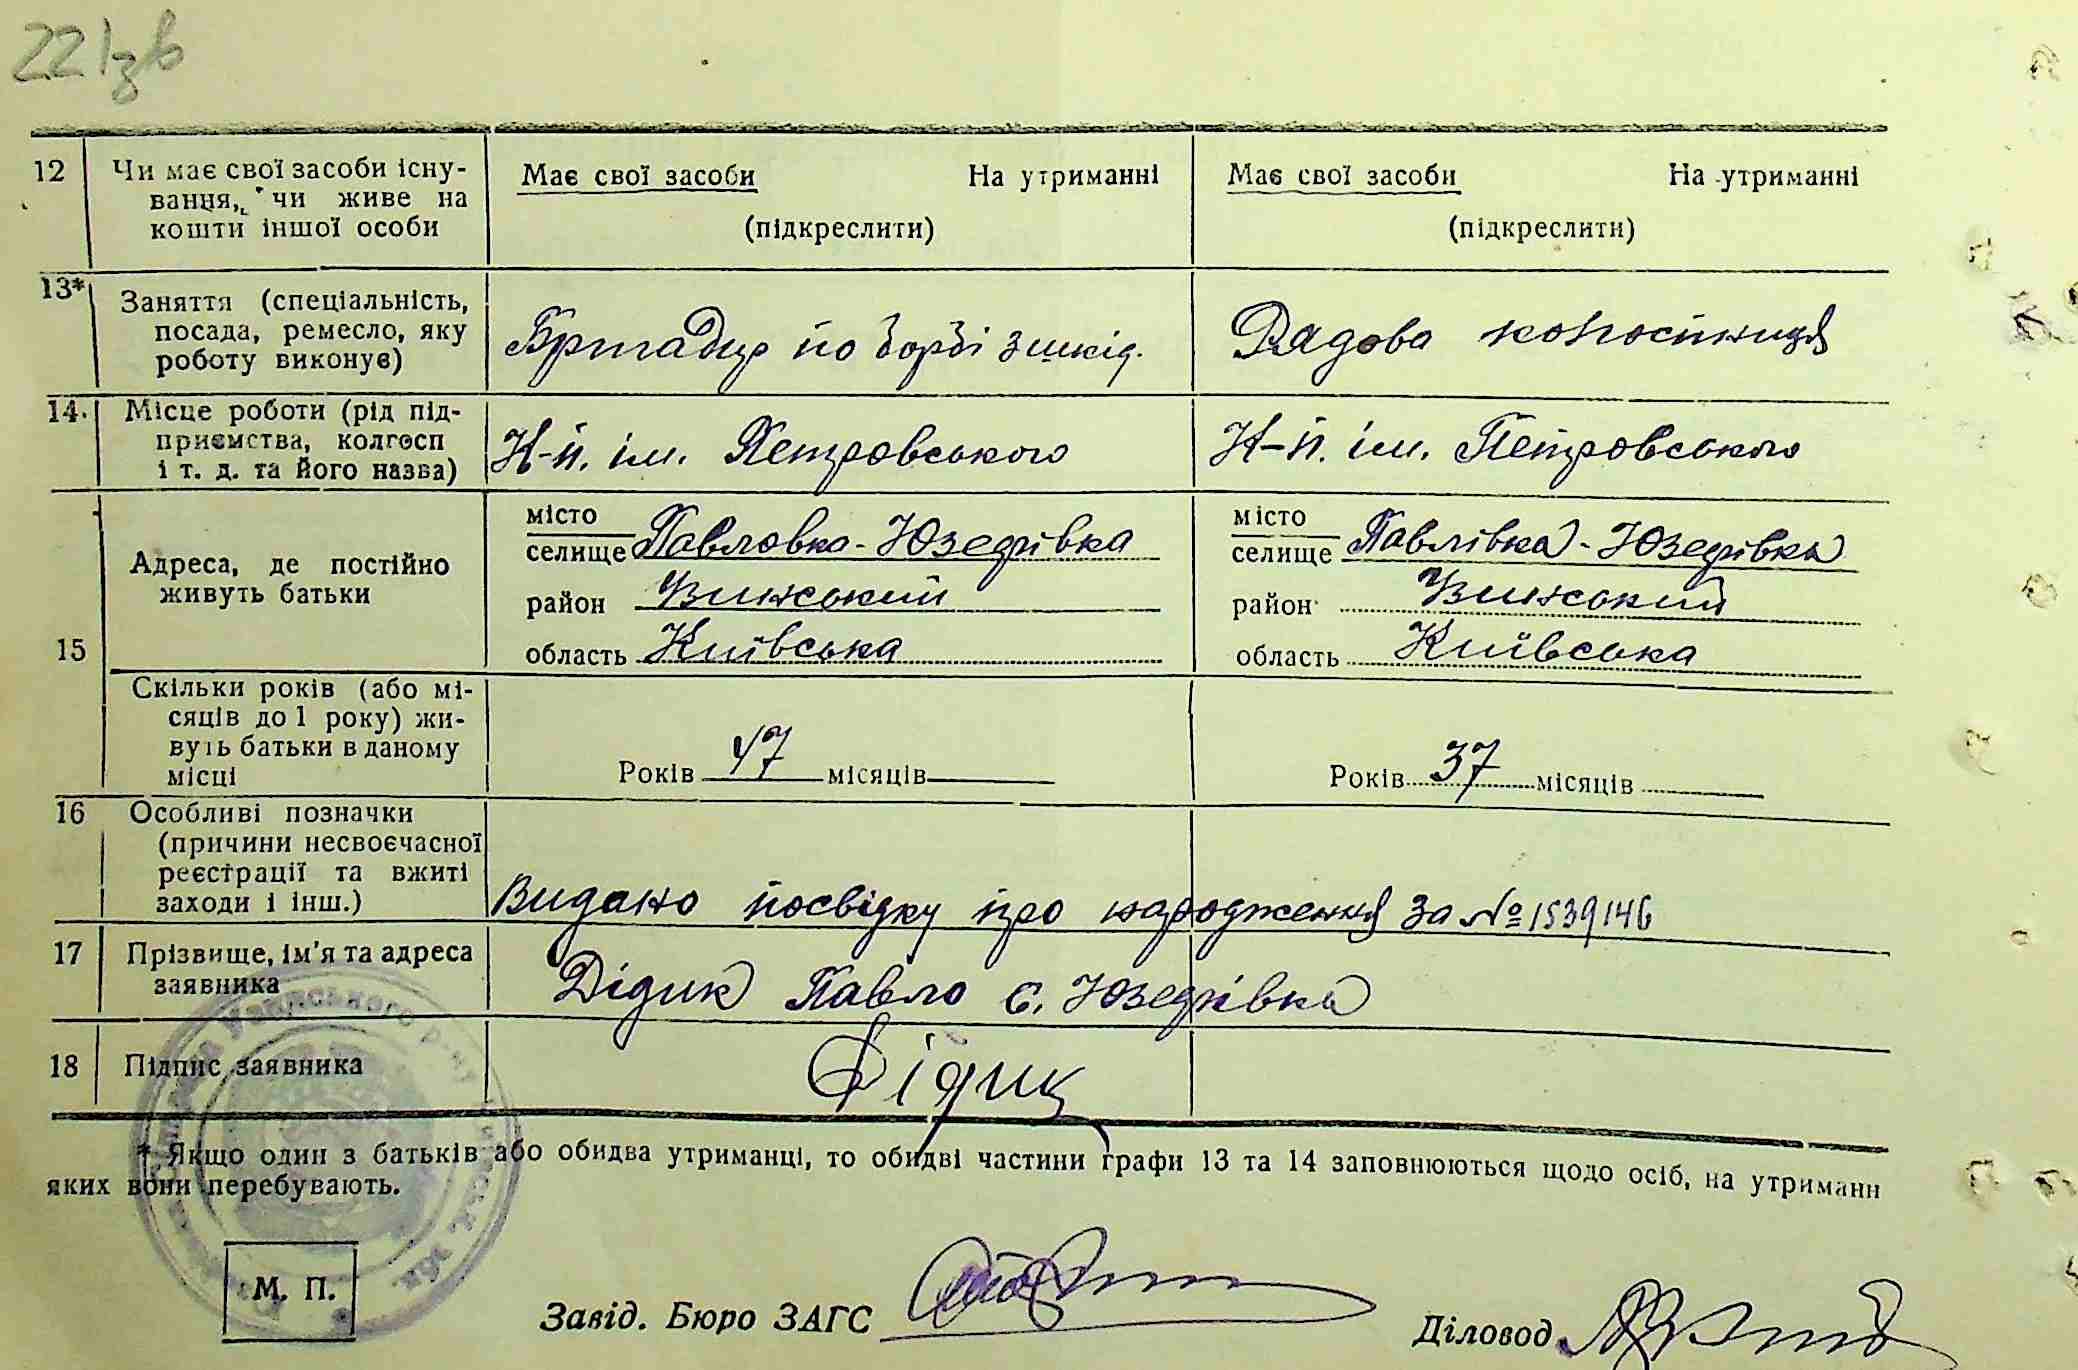 22 зв
12 Чи має свої засоби існу-
вання, чи живе на
кошти іншої особи
Має свої засоби На утриманні
(підкреслити)
Має свої засоби На утриманні
(підкреслити)
13* Заняття (спеціальність,
посада, ремесло, яку
роботу виконує)
Бригадир по борбі з шкід.
Рядова колгоспниця
14. Місце роботи (рід під-
приємства, колгосп
і т. д. та його назва)
К-п. ім. Петровського
К-п. ім. Петровського
15 Адреса, де постійно
живуть батьки
місто
селище Павловка-Юзефівка
район Винський
область Київська
місто
селище Павлівка-Юзефівка
район Винський
область Київська
Скільки років (або мі-
сяців до 1 року) жи-
вуть батьки в даному
місці
Років 47 місяців
Років 37 місяців
16 Особливі позначки
(причини несвоєчасної
реєстрації та вжиті
заходи і інш.)
Видано посвідку про народження за № 1539146
17 Прізвище, ім'я та адреса
заявника
Дідик Павло с. Юзефівка
18 Підпис заявника
Дідик
* Якщо один з батьків або обидва утриманці, то обидві частини графи 13 та 14 заповнюються щодо осіб, на утриманн
яких вони перебувають.
М. П.
Завід. Бюро ЗАГС
Діловод